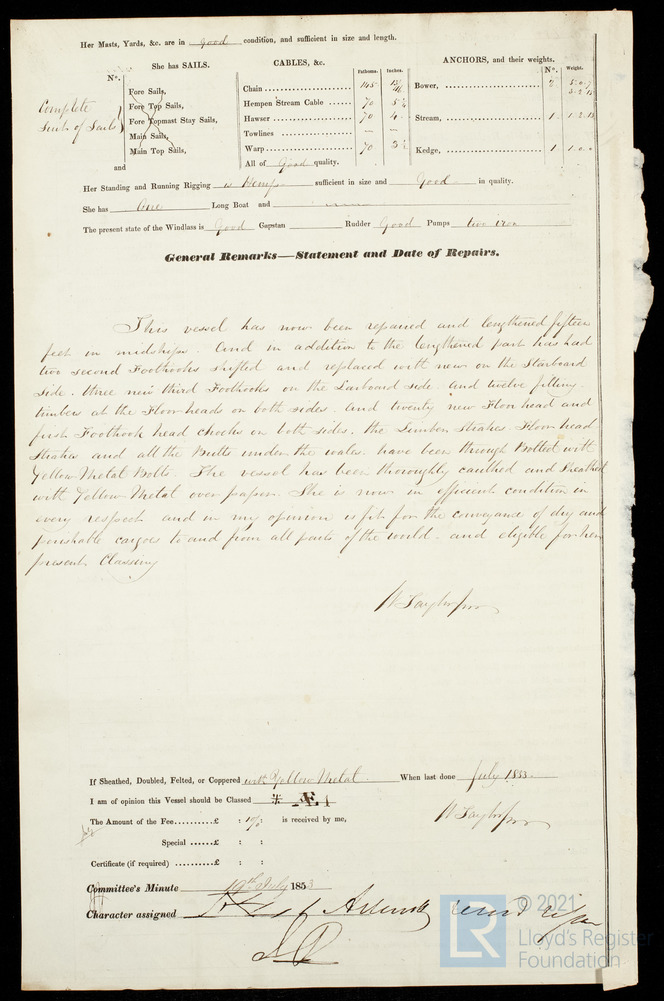 Her Masts, Yards, &c. are in good condition, and sufficient in size and length.
She has SAILS. CABLES, &c. ANCHORS, and their weights.
N°. Fathoms. Inches. N°. Weight.
Fore Sails, Chain 145 Bower, 2
Complete Fore Top Sails, Hempen Stream Cable 70
Suit of Sails Fore Topmast Stay Sails, Hawser 70 Stream, 1
Main Sails, Towlines
Main Top Sails, Warp 70 Kedge, 1
and All of Good quality.
Her Standing and Running Rigging is Hemp sufficient in size and Good in quality.
She has One Long Boat and
The present state of the Windlass is Good Capstan Rudder Good Pumps two iron
General Remarks—Statement and Date of Repairs.
This vessel has now been repaired and lengthened fifteen
feet in midships. And in addition to the lengthened part has had
two second Foothooks shifted and replaced with new on the Starboard
side. three new third Foothooks on the Larboard side. and twelve filling
timbers at the Floor heads on both sides. and twenty new Floor head and
first Foothook head chocks on both sides. the Limber Strakes. Floor head
Strakes and all the Butts under the wales. have been through Bolted with
Yellow Metal Bolts. The vessel has been thoroughly caulked and Sheathed
with Yellow Metal over paper. She is now in efficient condition in
every respect and in my opinion is fit for the conveyance of dry and
perishable cargoes to and from all parts of the world. and eligible for her
present Classing
If Sheathed, Doubled, Felted, or Coppered with Yellow Metal When last done July 1853.
I am of opinion this Vessel should be Classed Æ 1
The Amount of the Fee..........£ : 10/ : is received by me,
Special ......£ : :
Certificate (if required) .......£ : :
Committee's Minute 19th July 1853
Character assigned
© 2021
LR
Lloyd's Register
Foundation